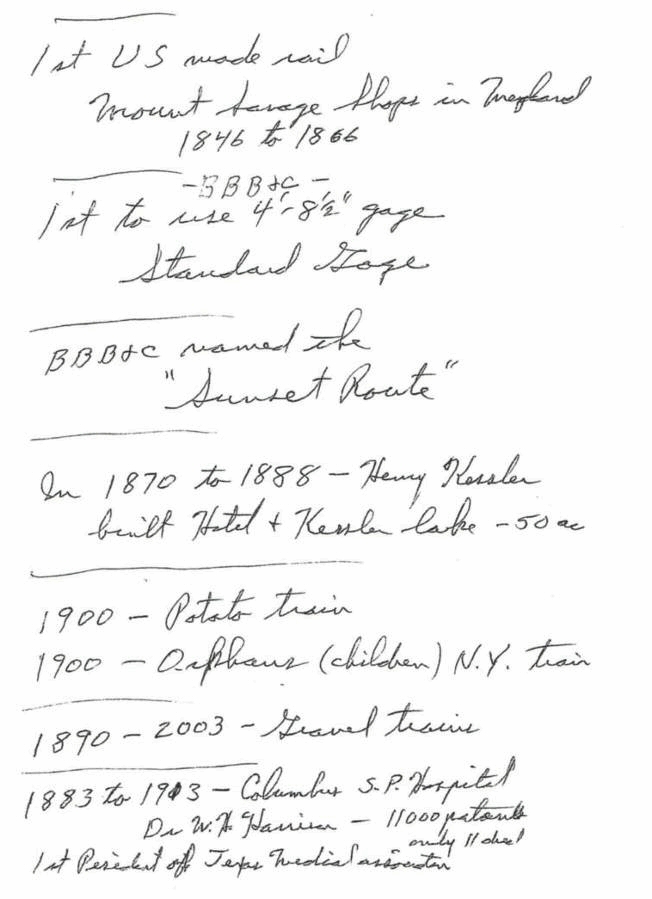 1st US made rail
Mount Savage Shops in Maryland
1846 to 1866
- BBB&C -
1st to use 4'-8½" gage
Standard Gage
BBB&C named the
"Sunset Route"
In 1870 to 1888 - Henry Kessler
built Hotel & Kessler lake - 50 ac
1900 - Potato train
1900 - Orphans (children) N.Y. train
1890 - 2003 - Gravel trains
1883 to 1913 - Columbus S.P. Hospital
Dr W.H. Harrison - 11000 patents
only 11 died
1st President of Texas Medical association